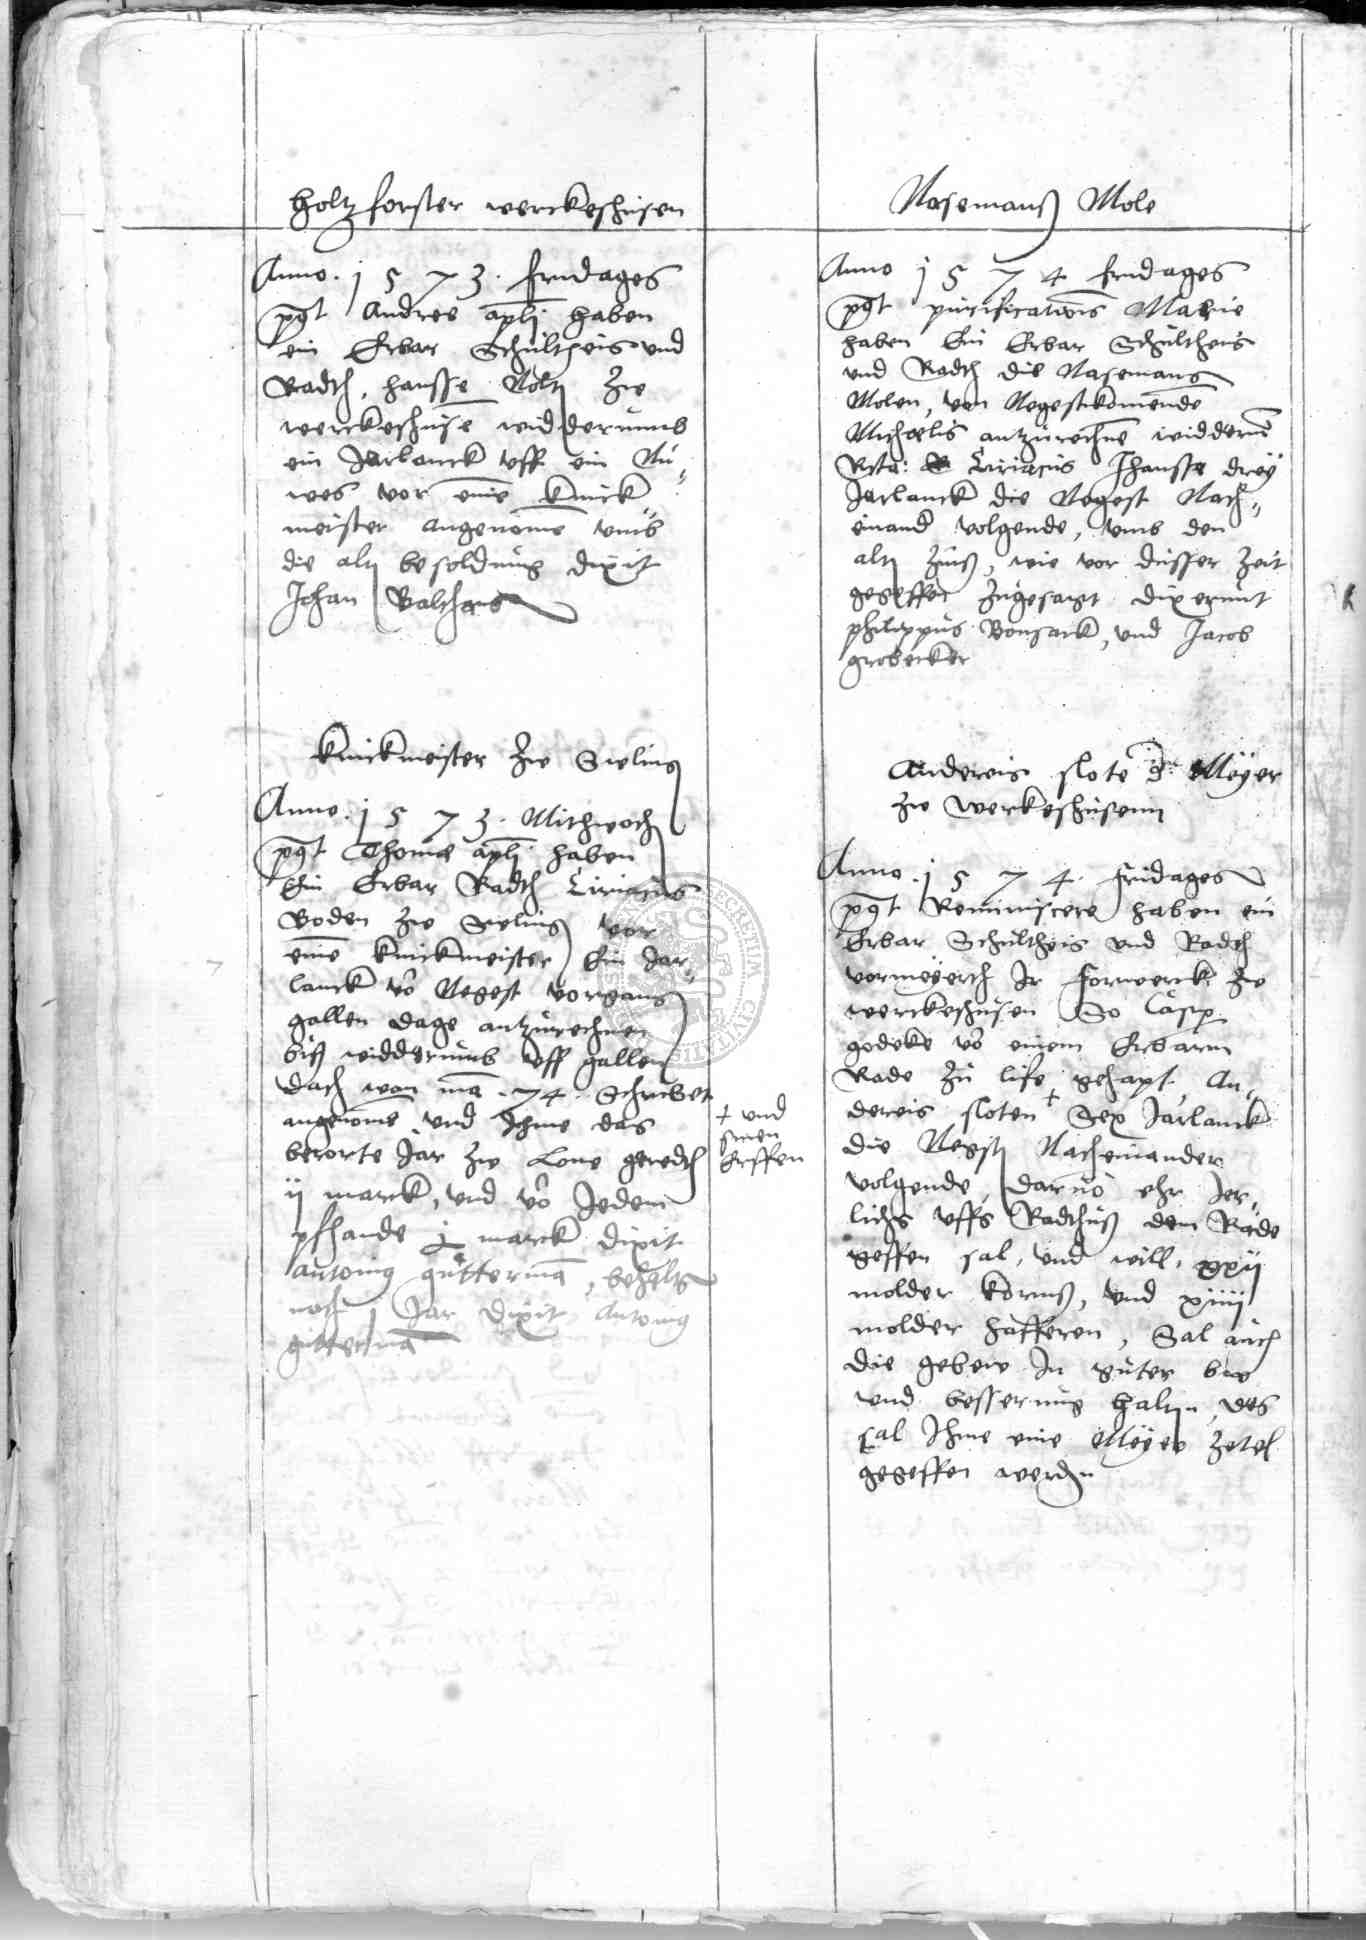 Holtzforster werckeshusen
Anno. 1573. frydages
pqt Andree apli haben
ein Erbar Schultheis und
Radth, Hansse Nolt zw
werckeshuse widderumb
ein Jarlanck uff ein Nu-
wes vor eine knick
meister angenome umb
die alt besoldung dixit
Johan Balthasar
knickmeister zw
Anno. 1573. Mithwoch
pqt Thome apli haben
Ein Erbar Radth Ciriacus
Boden zw vor
eine knickmeister Ein Jar-
lanck vo Negest vorgang
gallen dage antzurechnen
biß widderumb uff gallen
dach wan ma .74. Schribet
angenome, und Ihme das
berorte Jar zw Lone geredth
ij marck, und vo Jedem
pfhande marck dixit
Antonig gutterma, behelt
noch 1 Jar dixit Antonig
gutterma
+ und
sinen
Erffen
Nasemanß Mole
Anno 1574 frydages
pqt purificationis Marie
haben Ein Erbar Schultheis
und Radth die Nasemans
Molen, von Negestkomende
Michaelis antzurechne widderum
Ciriacus Jhansse drey
Jarlanck die Negest Nach-
einand volgende, umb den
alt Zinß, wie vor disser Zeit
gegeffen zugesagt dixerunt
philippus Bonsack, und Jacob
grobecker
Andereis slote d Meyer
zw werkeshusenn
Anno. 1574. fridages
pqt Reminiscere haben ein
Erbar Schultheis und Radth
vormeyerth Ir forwerck zw
werckeshusen So Casp
godeke vo einem Erbarm
Rade zu life gehapt An-
dereis sloten + Sex Jarlanck
die Negst Nacheinander
volgende, darvo ehr Jer-
lichs uffs Radthuß dem Rade
geffen sal, und will, xxij
molder korns, und xiiij
molder hafferen, Sal auch
die gebew In guter bw
und besserung halten, des
sal Ihme eine Meyer Zetel
gegeffen werden